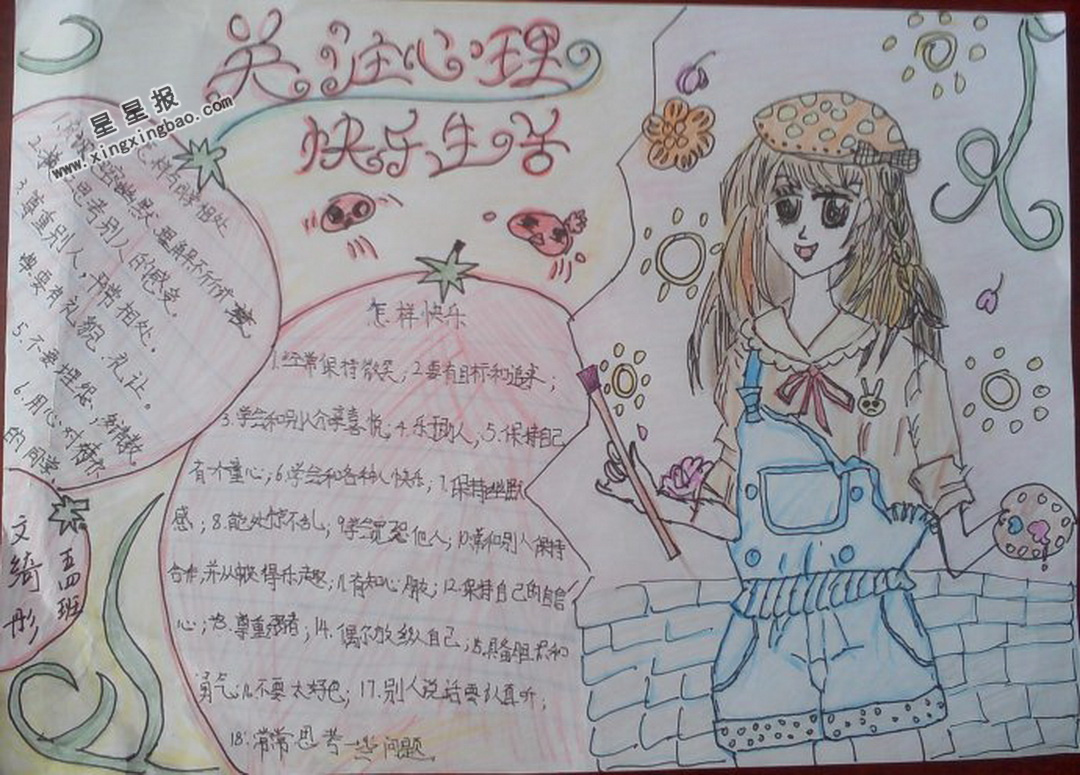 关注心理
快乐生活
星星报
www.xingxingbao.com
怎样与
相处
幽默
思考别人的感受
3.尊重别人,平常相处。
要有礼貌、礼让。
5.不要埋怨,
6.用心
的同学
五四班
文绮彤
怎样快乐
1.经常保持微笑;2.要有目标和追求;
3.学会和别人分享喜悦;4.乐于助人;5.保持自己
有个童心;6.学会和各种人快乐;7.保持幽默
感;8.能处惊不乱;9.学会宽恕他人;10.常和别人保持
合作,并从中获得乐趣;11.有知心朋友;12.保持自己的自信
心;13.尊重弱者;14.偶尔放纵自己;15.具备胆识和
勇气;16.不要太好色;17.别人说话要认真听;
18.常常思考一些问题